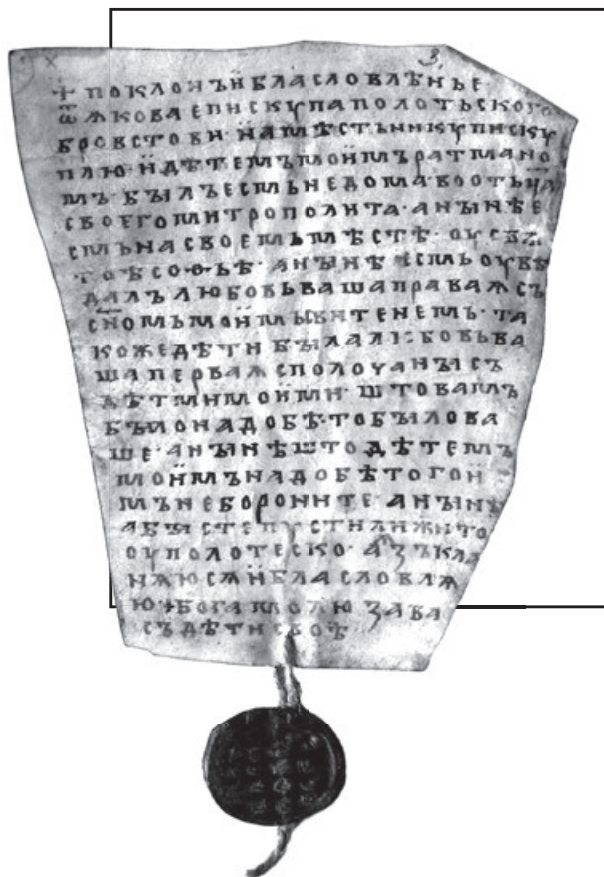 ☩ поклонъ й бласловлѣнье ·
ѿ ꙗкова епискупа полотьского
провстови · намѣстьникꙋ пискꙋ
плю · й дѣтемъ моймъ ратмано
мъ · былъ есмь не дома · во оть на
своего митрополита · а нынѣ е
смь на своемь мѣстѣ · оу свѧ
тоѣ софьѣ · а нынѣ есмь оувѣ
далъ любовь ваша праваѧ съ
сн҃омъ моймь витенемь · та
коже дѣти была любовь ва
ша перваѧ с полочаны съ
дѣтми моими · што вамъ
было надобѣ · то было ва
ше · а нынѣ што дѣтемъ
моймъ надобѣ того й
мъ не бороните · а нынѣ
абы сте пустили жито
оу полотеско · а ꙗзъ кла
нѧю сѧ й бласловлѧ
ю й бога молю за ва
съ дѣти своѣ